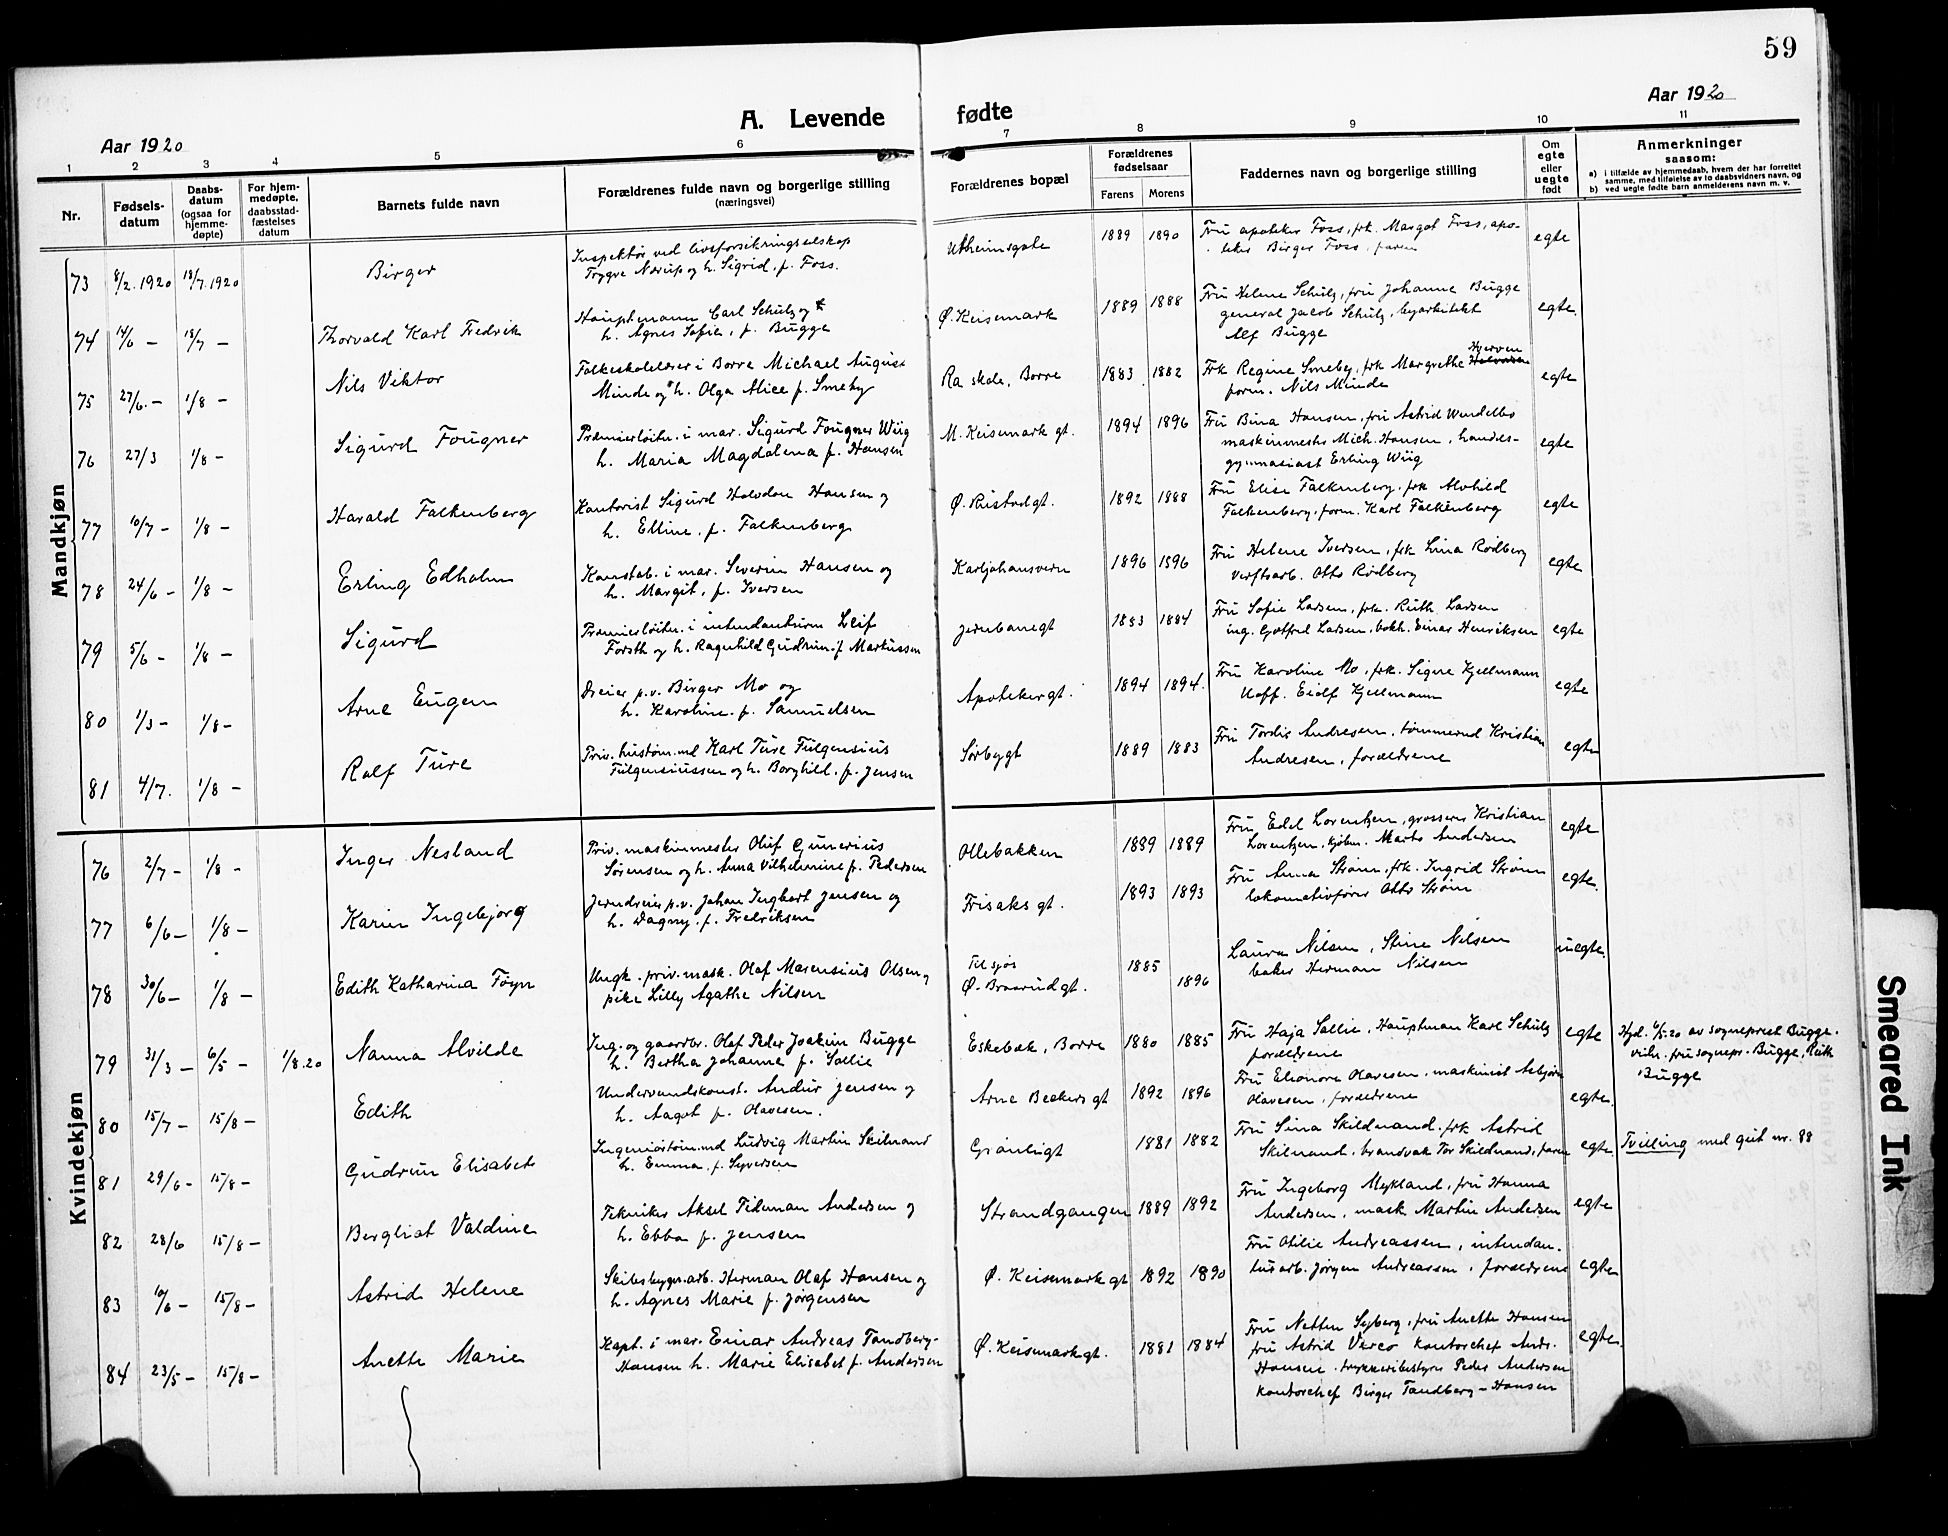 59
Aar 1920
A. Levende fødte
Aar 1920
1 2 3 4 5 6 7 8 9 10 11
Nr.
Fødsels-
datum
Daabs-
datum
(ogsaa for
hjemme-
døpte)
For hjem-
medøpte,
daabsstad-
fæstelses
datum
Barnets fulde navn
Forældrenes fulde navn og borgerlige stilling
(næringsvei)
Forældrenes bopæl
Forældrenes
fødselsaar
Farens Morens
Faddernes navn og borgerlige stilling
Om
egte
eller
uegte
født
Anmerkninger
saasom:
a) i tilfælde av hjemmedaab, hvem der har forrettet
samme, med tilføielse av to daabsvidners navn, og
b) ved uegte fødte barn anmelderens navn m. v.
Mandkjøn
73 8/2. 1920 18/7. 1920 Birger
Inspektør ved livsforsikringsselskap
Trygve Nærup og h. Sigrid, f. Foss.
1889 1890
Fru apoteker Foss, frk. Margot Foss, apo-
teker Birger Foss, faren
egte
74 14/6 – 18/7 – Thorvald Karl Fredrik
Hauptmann Carl Schulz og
h. Agnes Sofie, f. Bugge
Ø. Keisemark 1889 1888
Fru Helene Schulz, fru Johanne Bugge
general Jacob Schulz, byarkitekt
Alf Bugge
egte.
75 27/6. – 1/8 – Nils Viktor
Folkeskolelærer i Borre Michael August
Minde og h. Olga Alice f. Smeby
Ra skole, Borre 1883 1882
Frk Regine Smeby, frk Margrethe
form. Nils Minde
egte
76 27/3 1/8 – Sigurd Fougner
Premierløitn. i mar. Sigurd Fougner Wiig
h. Maria Magdalena f. Hansen
M. Keisemark gt. 1894 1896
Fru Bina Hansen, fru Astrid
maskinmester Mich. Hansen, handels-
gymnasiast Erling Wiig
egte
77 10/7 – 1/8 – Harald Falkenberg
Kontorist Sigurd Halvdan Hansen og
h. Elline, f. Falkenberg
Ø. Rustad gt. 1892 1888
Fru Elise Falkenberg, frk Alvhild
Falkenberg, form. Karl Falkenberg
egte
78 24/6 – 1/8 – Erling Edholm
Konstab. i mar. Severin Hansen og
h. Margit, f. Iversen
Karljohansvern 1896 1896
Fru Helene Iversen, frk Lina Rødberg
verftsarb. Otto Rødberg
egte
79 5/6 – 1/8 – Sigurd
Premierløitn. i intendanturen Leif
Forsth og h. Ragnhild Gudrun f. Martinssen
Jernbanegt 1883 1884
Fru Sofie Larsen, frk. Ruth Larsen
ing. Gotfred Larsen, bokh. Einar Henriksen
egte
80 1/3 – 1/8 – Arne Eugen
Dreier p.v. Birger Mo og
h. Karoline, f. Samuelsen
Apotekergt. 1894 1894.
Fru Karoline Mo, frk. Signe Kjellmann
Uoff. Eiolf Kjellmann
egte
81 4/7. 1/8 – Rolf Ture
Priv. hustøm.md Karl Ture Fulgensius
Fulgensiussen og h. Borghild, f. Jensen
Sørbygt 1889 1883
Fru Tordis Andresen, tømmermd Kristian
Andresen, forældrene
egte
Kvindekjøn
76 2/7 – 1/8 – Inger Nesland
Priv. maskinmester Oluf Gunerius
Sørensen og h. Anna Vilhelmine f. Pedersen
Ollebakken 1889 1889
Fru Edel Lorentzen, grosserer Kristian
Lorentzen, kjøbm. Martin Andersen
egte
77 6/6 – 1/8 – Karin Ingebjørg
Jerndreier p.v. Johan Ingbart Jensen og
h. Dagny, f. Fredriksen
Frisaks gt. 1893 1893
Fru Anna Strøm, frk. Ingrid Strøm
lokomotivfører Otto Strøm
egte.
78 30/6 – 1/8 – Edith Katharina Føyn
Ungk. priv. mask. Olaf Marensius Olsen og
pike Lilly Agathe Nilsen
Tilsjøs
Ø. Braarud gt. 1885 1896
Laura Nilsen, Stine Nilsen
baker Herman Nilsen
uegte
79 31/3 – 6/5 – 1/8.20 Nanna Alvilde
Ing. og gaardbr. Olaf Peder Joakim Bugge
h. Bertha Johanne f. Sollie
Eskebæk, Borre 1880 1885
Fru Haja Sollie, Hauptman Karl Schulz
forældrene
egte
Hjd. 6/5.20 av sogneprest Bugge.
vidn. fru sognepr. Bugge, Ruth
Bugge
80 15/7 – 15/8 – Edith
Underv.mdskonst. Andur Jensen og
h. Aagot f. Olavesen.
Arne Beekers gt 1892 1896
Fru Eleonore Olavesen, maskinist Asbjørn
Olavesen, forældrene
egte
81 29/6 – 15/8 – Gudrun Elisabet
Ingeniørtøm.md Ludvig Martin Skilnand
h. Emma, f. Syversen
Grønligt 1881 1882
Fru Sina Skildnand, frk Astrid
Skilnand, brandvak Tor Skildnand, faren
egte
Tvilling med gut nr. 88
82 28/6 15/8 – Bergliot Valdine
Tekniker Aksel Fideman Andersen og
h. Ebba f. Jensen
Strandgangen 1889 1892
Fru Ingeborg Mykland, fru Hanna
Andersen, mask Martin Andersen
egte
83 10/6 – 15/8 – Astrid Helene
Skibsbygn.arb. Herman Olaf Hansen og
h. Agnes Marie f. Jørgensen
Ø. Keisemark gt 1892 1890
Fru Otilie Andreassen, intendan-
turarb. Jørgen Andreassen, forældrene
egte
84 23/5 – 15/8 – Anette Marie
Kapt. i mar. Einar Andreas Tandberg-
Hansen h. Marie Elisabet f. Andersen
Ø. Keisemarkgt. 1881 1884
Fru Netten Syberg, fru Anette Hansen
fru Astrid Verco kontorchef Andr.
Hansen, trykkeribestyrer Peder Andersen
kontorchef Birger Tandberg-Hansen
egte
Smeared Ink